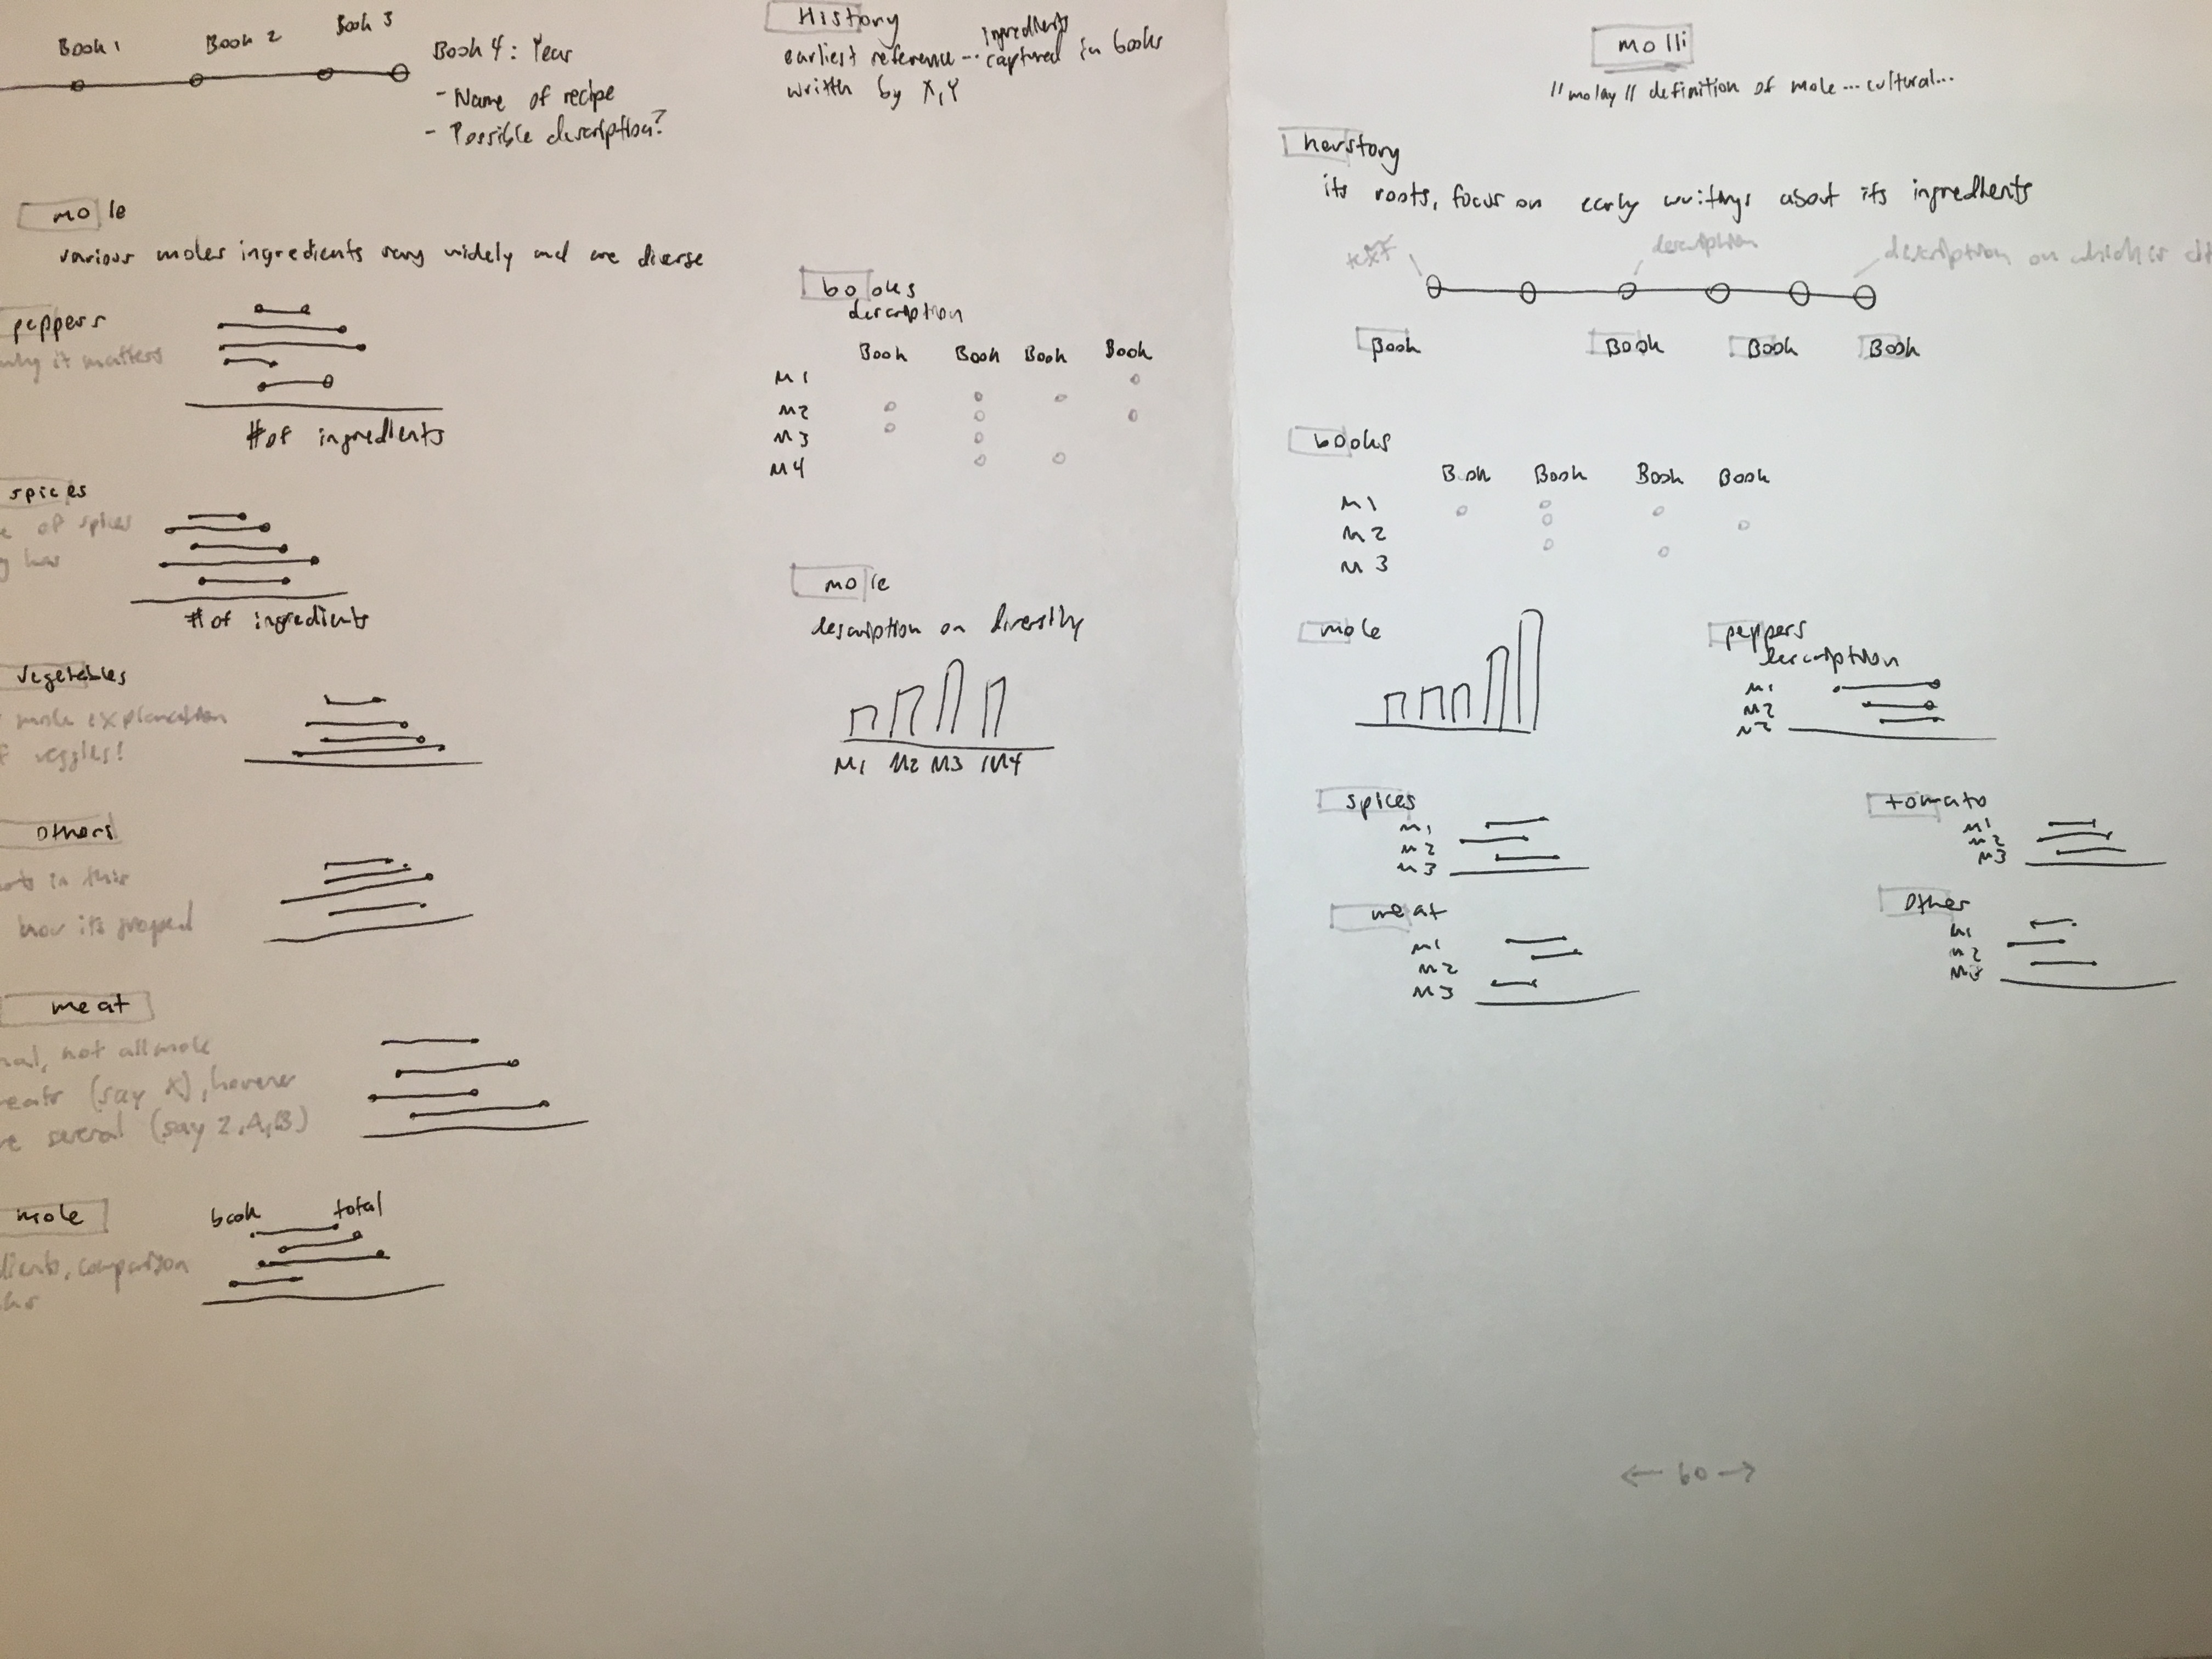 Book 1
Book 2
Book 3
Book 4: Year
- Name of recipe
- Possible description?
mole
various moles ingredients vary widely and are diverse
peppers
why it matters
# of ingredients
spices
of spices
has
# of ingredients
vegetables
mole explanation
veggies!
others
in this
how its grouped
meat
not all mole
(say X), however
several (say Z, A, B)
mole
book total
comparison
History
earliest reference... ingredients captured in books
written by X, Y
books
description
Book Book Book Book
M1
M2
M3
M4
mole
description on diversity
M1 M2 M3 M4
molli
// molay // definition of mole... cultural...
herstory
its roots, focus on early writings about its ingredients
text
description
description on which is
Book Book Book Book
books
Book Book Book Book
M1
M2
M3
mole
peppers
description
M1
M2
spices
M1
M2
M3
tomato
M1
M2
M3
meat
M1
M2
M3
Other
M1
M2
← 60 →